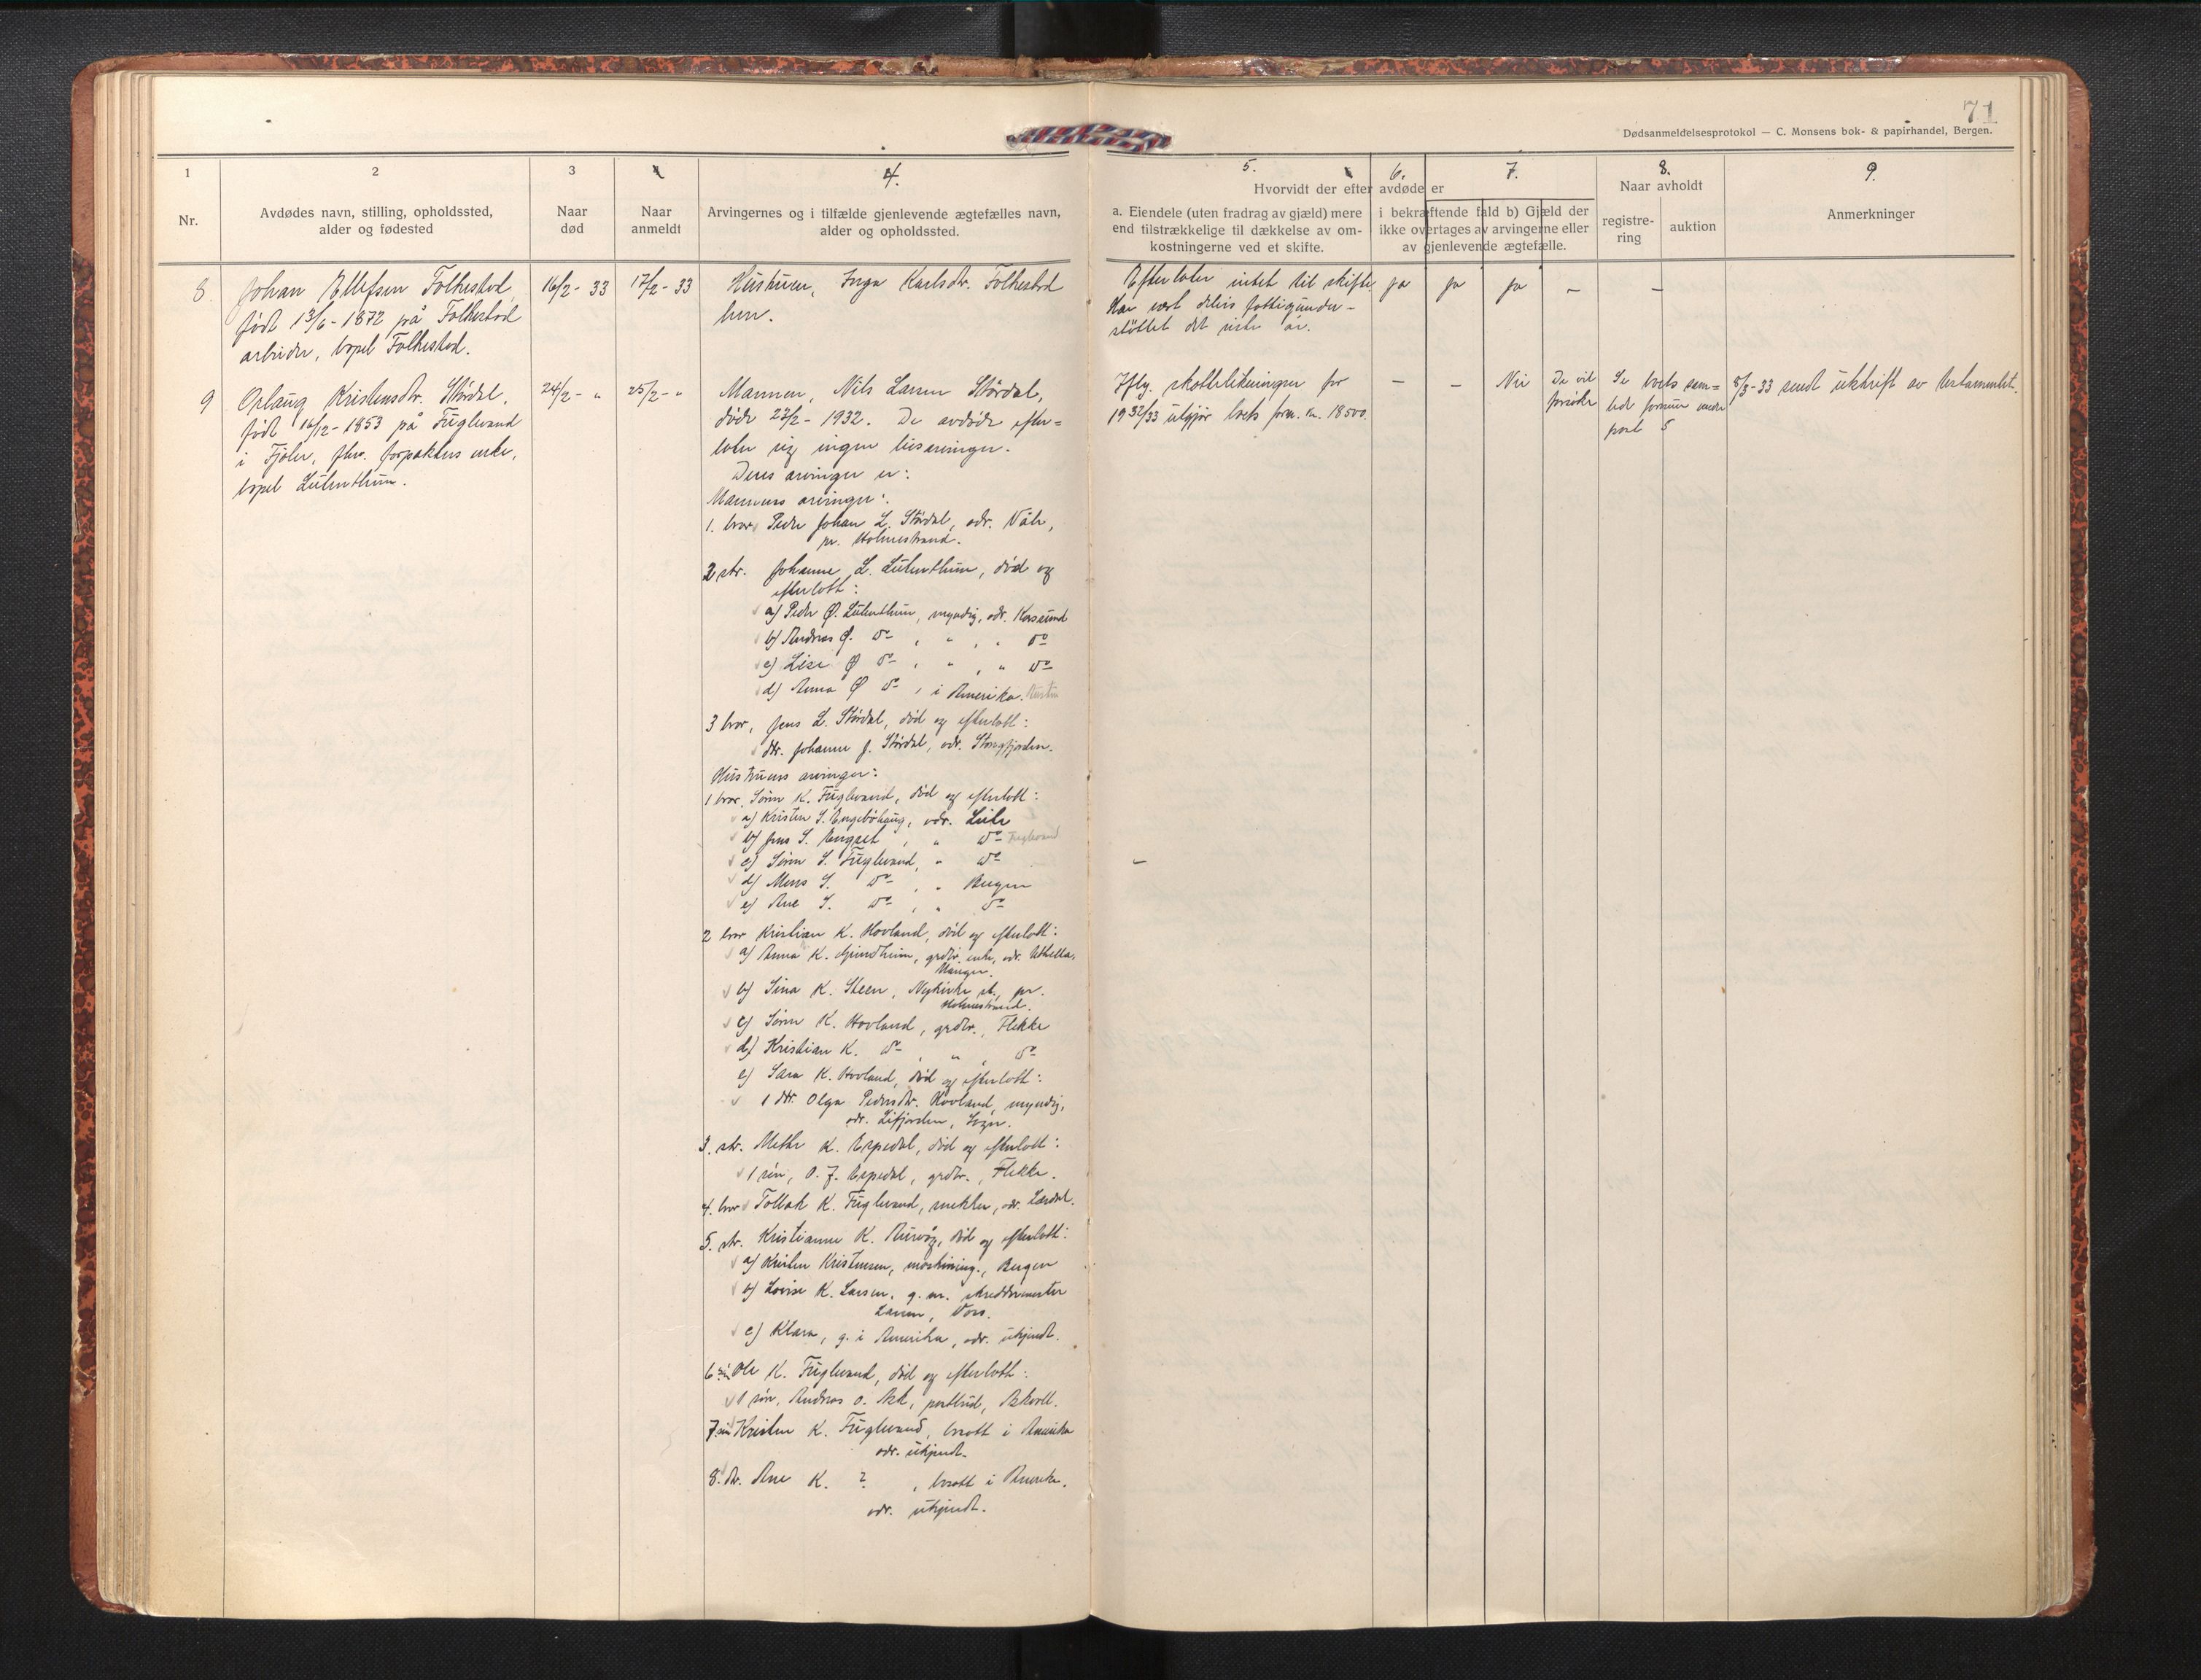 71
Dødsanmeldelsesprotokol — C. Monsens bok- & papirhandel, Bergen.
1
Nr.
2
Avdødes navn, stilling, opholdssted,
alder og fødested
3
Naar
død
Naar
anmeldt
4.
Arvingernes og i tilfælde gjenlevende ægtefælles navn,
alder og opholdssted.
5.
6.
7.
Hvorvidt der efter avdøde er
a. Eiendele (uten fradrag av gjæld) mere
end tilstrækkelige til dækkelse av om-
kostningerne ved et skifte.
i bekræftende fald b) Gjæld der
ikke overtages av arvingerne eller
av gjenlevende ægtefælle.
8.
Naar avholdt
registre-
ring
auktion
9.
Anmerkninger
8
Johan Ellefsen Folkestad,
født 13/6 - 1872 på Folkestad
arbeider, bopel Folkestad.
16/2 - 33
17/2 - 33
Hustruen, Inga Karlsdtr. Folkestad
her.
Efterlater intet til skifte.
Har vært delvis fattigunder-
støttet det siste år.
ja
ja
ja
–
–
9
Orlaug Kristensdtr. Stórdal,
født 16/12 - 1853 på Fuglevand
i Fjaler, fhv. forpakters enke,
bopel Lutentun.
24/2 - "
25/2 - "
Mannen, Nils Larsen Stórdal,
døde 27/2 - 1932. De avdøde efter=
later sig ingen livsarvinger.
Deres arvinger er:
Mannens arvinger:
1. bror Peder Johan L. Stórdal, adr. Våle,
pr. Holmestrand.
2 str. Johanne L. Lutentun, død og
efterlatt:
a) Peder Ø. Lutentun, myndig, adr. Korssund
b) Andreas Ø. do , " , " do
c) Lise Ø do , " , " do
d) Anna Ø do , i Amerika.
3 bror, Jens L. Stórdal, død og efterlatt:
dtr. Johanne J. Stórdal, adr. Stongfjorden.
Hustruens arvinger:
1 bror, Sören K. Fuglevand, død og efterlatt:
a) Kristen S. Engebøhaug, adr. Leite
b) Jens S. , " do Fuglevand
c) Sören S. Fuglevand, " do
d) Mons S. do , " Bergen
e) Ane S. do , " do
2 bror Kristian K. Hovland, død og efterlatt:
a) Anna K. , grdbr. enke, adr.
Manger.
b) Sina K. Steen, Nykirke st. pr.
Holmestrand.
c) Sören K. Hovland, grdbr., Flekke
d) Kristian K. do , " , do
e) Sara K. Hovland, død og efterlatt:
1 dtr. Olga Pedersdtr. Hovland, myndig,
adr. Lifjorden, Sogn.
3. str. Methe K. Espedal, død og efterlatt:
1 sön, O. J. Espedal, grdbr., Flekke.
4. bror Tollak K. Fuglevand, snekker, adr. Lærdal.
5. str. Kristianne K. , død og efterlatt:
a) Kristen Kristensen, maskining., Bergen
b) Lovise K. Larsen, g. m. skreddermester
Larsen, Voss.
c) Klara, g. i Amerika, adr. ukjendt.
6 Ole K. Fuglevand, død og efterlatt:
1 sön, Andreas O. Ask, postbud, Askvoll.
7. Kristen K. Fuglevand, bosatt i Amerika
adr. ukjendt.
8. Ane K. ? , bosatt i Amerika.
adr. ukjendt.
Iflg. skatteligningen for
1932/33 utgjør boets form. kr. 18500.
–
–
Nei
De vil
forsøke
Se boets sam=
lede formue under
post 5
8/3 - 33 sendt utskrift av testamentet.